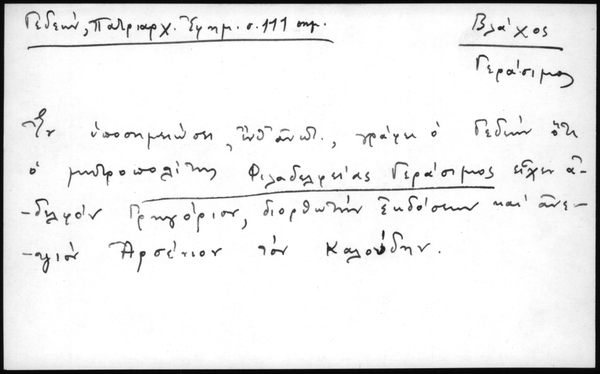 Γεδεών, Πατριαρχ. Ἐφημ. σ. 111 σημ.
Βλάχος
Γεράσιμος
Ἐν ὑποσημειώσει, ἔνθ' ἀνωτ., γράφει ὁ Γεδεών ὅτι
ὁ μητροπολίτης Φιλαδελφείας Γεράσιμος εἶχεν ἀ-
-δελφόν Γρηγόριον, διορθωτήν ἐκδόσεων καί ἀνε-
-ψιόν Ἀρσένιον τόν Καλούδην.